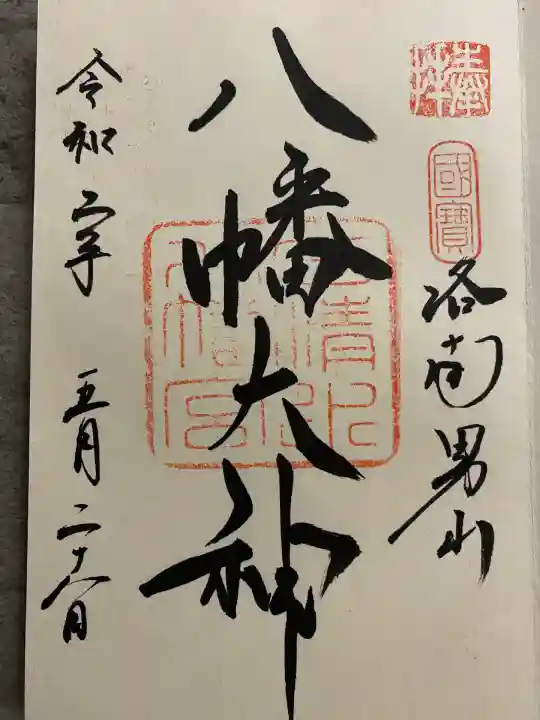 奉拝
國寶
洛南男山
八幡大神
石清水
八幡宮
令和二年 五月二十八日